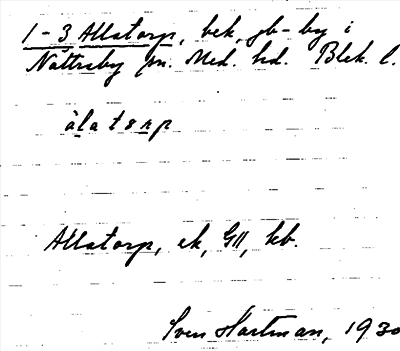 1-3 Allatorp, bek, jb-by i
Nättraby sn. Med. hd. Blek. l.
àlatorp
Allatorp, ek, GII, kb.
Sven Hartman, 1930